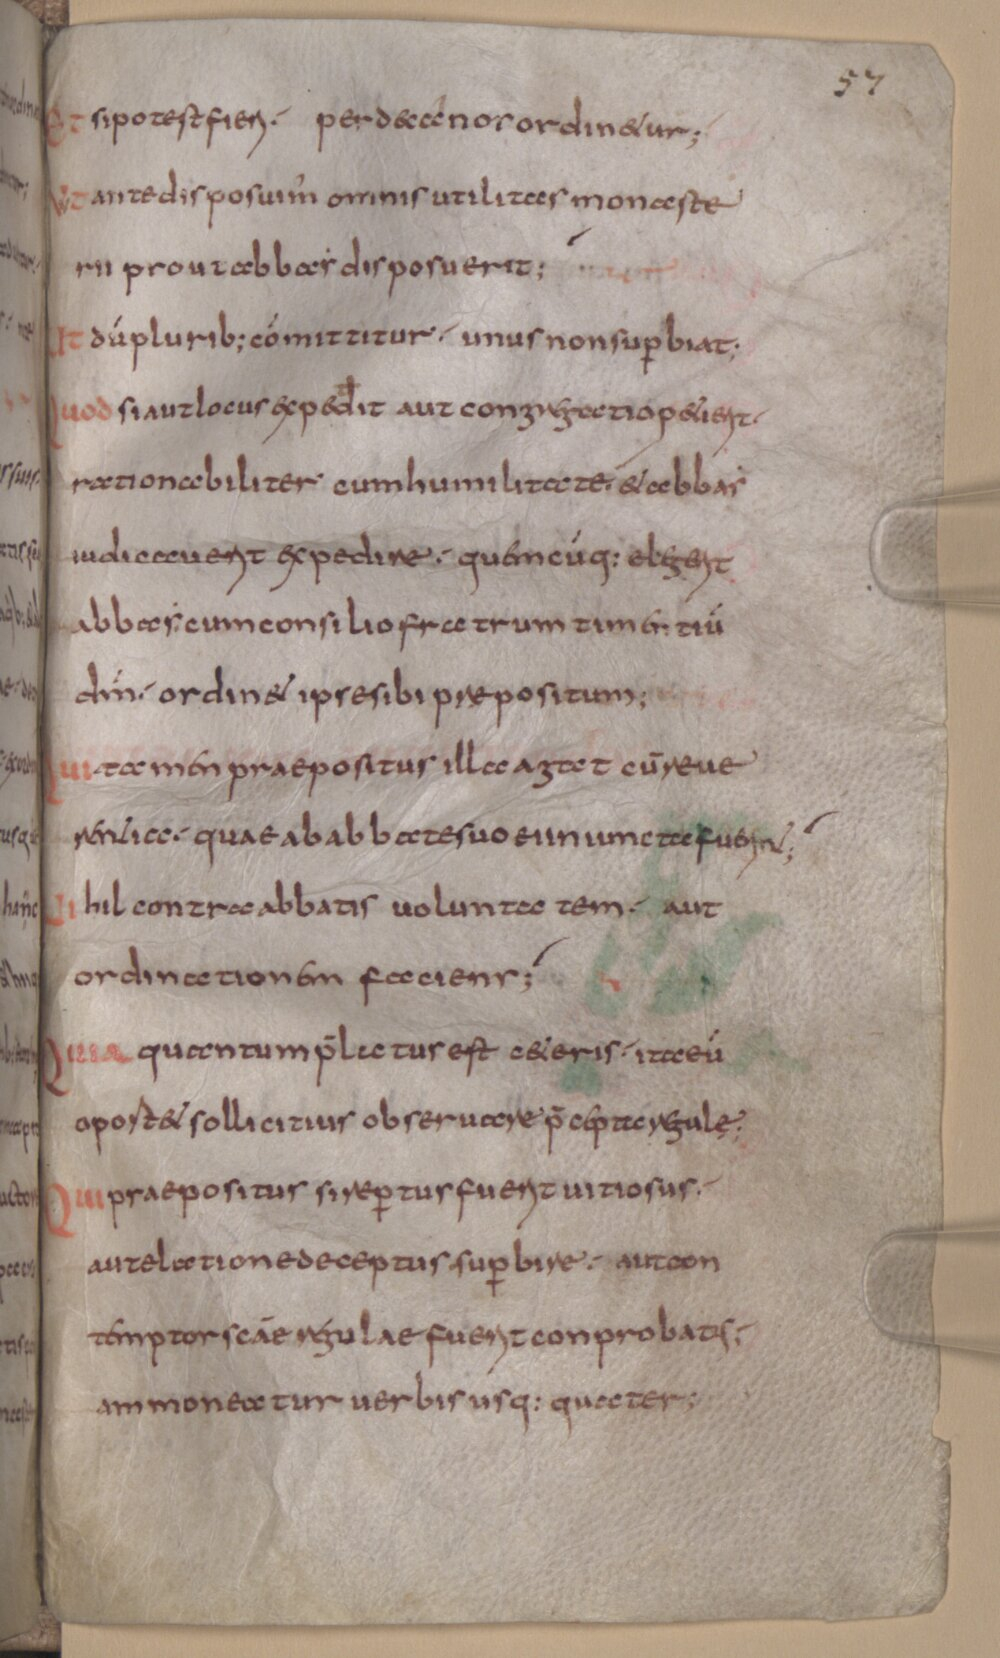 57
Et si potest fieri· per decanos ordinetur;
Ut ante disposuim̄ omnis utilitas monaste
rii prout abbas disposuerit;
Ut dū plurib; cōmittitur· unus non sup̄biat;
Quod si aut locus expetit aut congregatio petierit·
rationabiliter cum humilitate· et abbas
iudicauerit expedire· quemcūq: elegerit
abbas cum consilio fratrum timentiū
dm̄· ordinet ipse sibi prepositum;
Qui tamen praepositus illa agat cū reue
rentia· quae ab abbate suo eiunincta fuerint;
Nihil contra abbatis uoluntatem· aut
ordinationem faciens;
Quia quantum p̄latus est ceteris· ita eū
oportet sollicitius obseruare p̄cepta regulę;
Qui praepositus si rep̄tus fuerit uitiosus·
aut elatione deceptus sup̄bire· aut con
temptor scāe regulae fuerit conprobatus;
ammoneatur uerbis usq: quater;